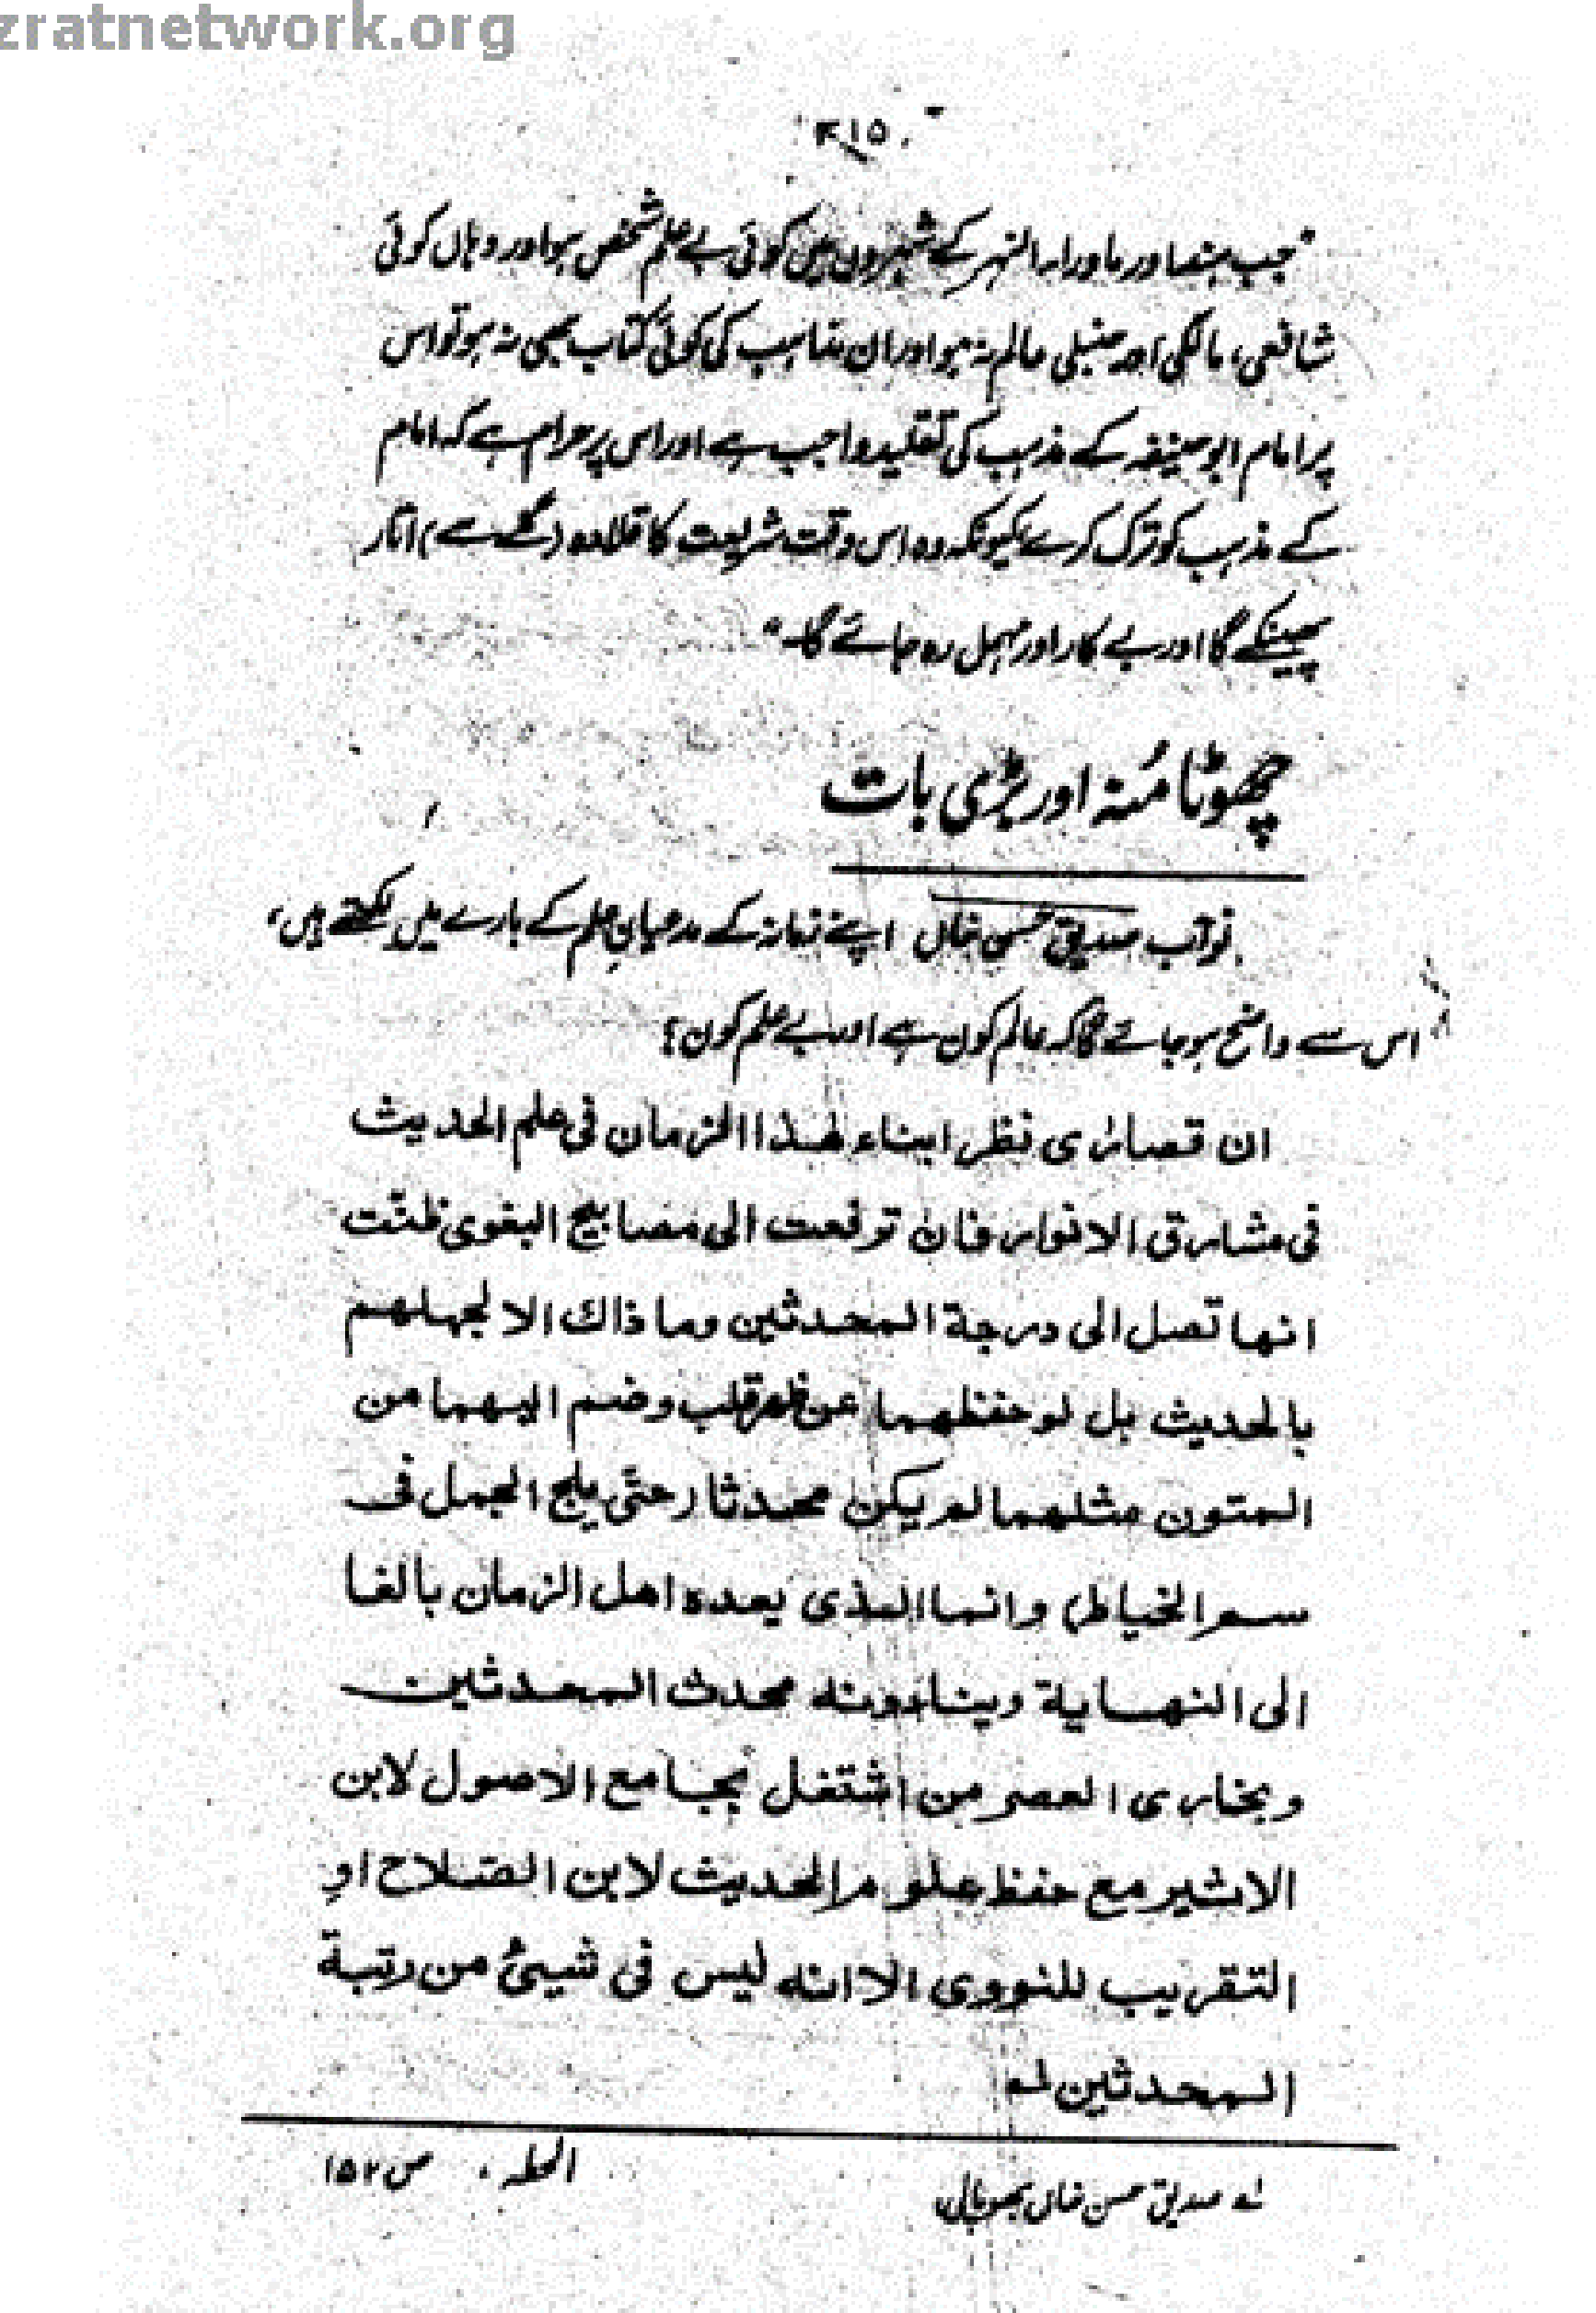 zratnetwork.org
۴۱۵
"جب ہند اور ماوراء النہر کے شہروں میں کوئی بے علم شخص ہو اور وہاں کوئی
شافعی، مالکی اور حنبلی عالم نہ ہو اور ان مذاہب کی کوئی کتاب بھی نہ ہو تو اس
پر امام ابوحنیفہ کے مذہب کی تقلید واجب ہے اور اس پر حرام ہے کہ امام
کے مذہب کو ترک کرے کیونکہ وہ اس وقت شریعت کا قلادہ (گلے سے) اتار
پھینکے گا اور بے کار اور مہمل رہ جائے گا۔"
چھوٹا مُنہ اور بڑی بات
نواب صدیق حسن خاں اپنے زمانہ کے مدعیانِ علم کے بارے میں لکھتے ہیں،
اس سے واضح ہو جائے گا کہ عالم کون ہے اور بے علم کون؟
ان قصارٰی نظر ابناء ھٰذا الزمان فی علم الحدیث
فی مشارق الانوار فان ترفعت الی مصابیح البغوی ظنّت
انھا تصل الی درجة المحدثین وما ذاك الا لجہلھم
بالحدیث بل لو حفظھما عن ظہر قلب وضم الیھما من
المتون مثلھما لم یکن محدثا رحتّٰی یلج الجمل فی
سم الخیاط) وانما الذی یعدہ اھل الزمان بالغا
الی النھایة وینادونہ محدث المحدثین
وبخاری العصر من اشتغل بجامع الاصول لابن
الاثیر مع حفظ علوم الحدیث لابن الصّلاح او
التقریب للنووی الا انہ لیس فی شیئ من رتبة
المحدثین لہ
لے صدیق حسن خاں بھوپالی الحطہ، ص ۱۵۲